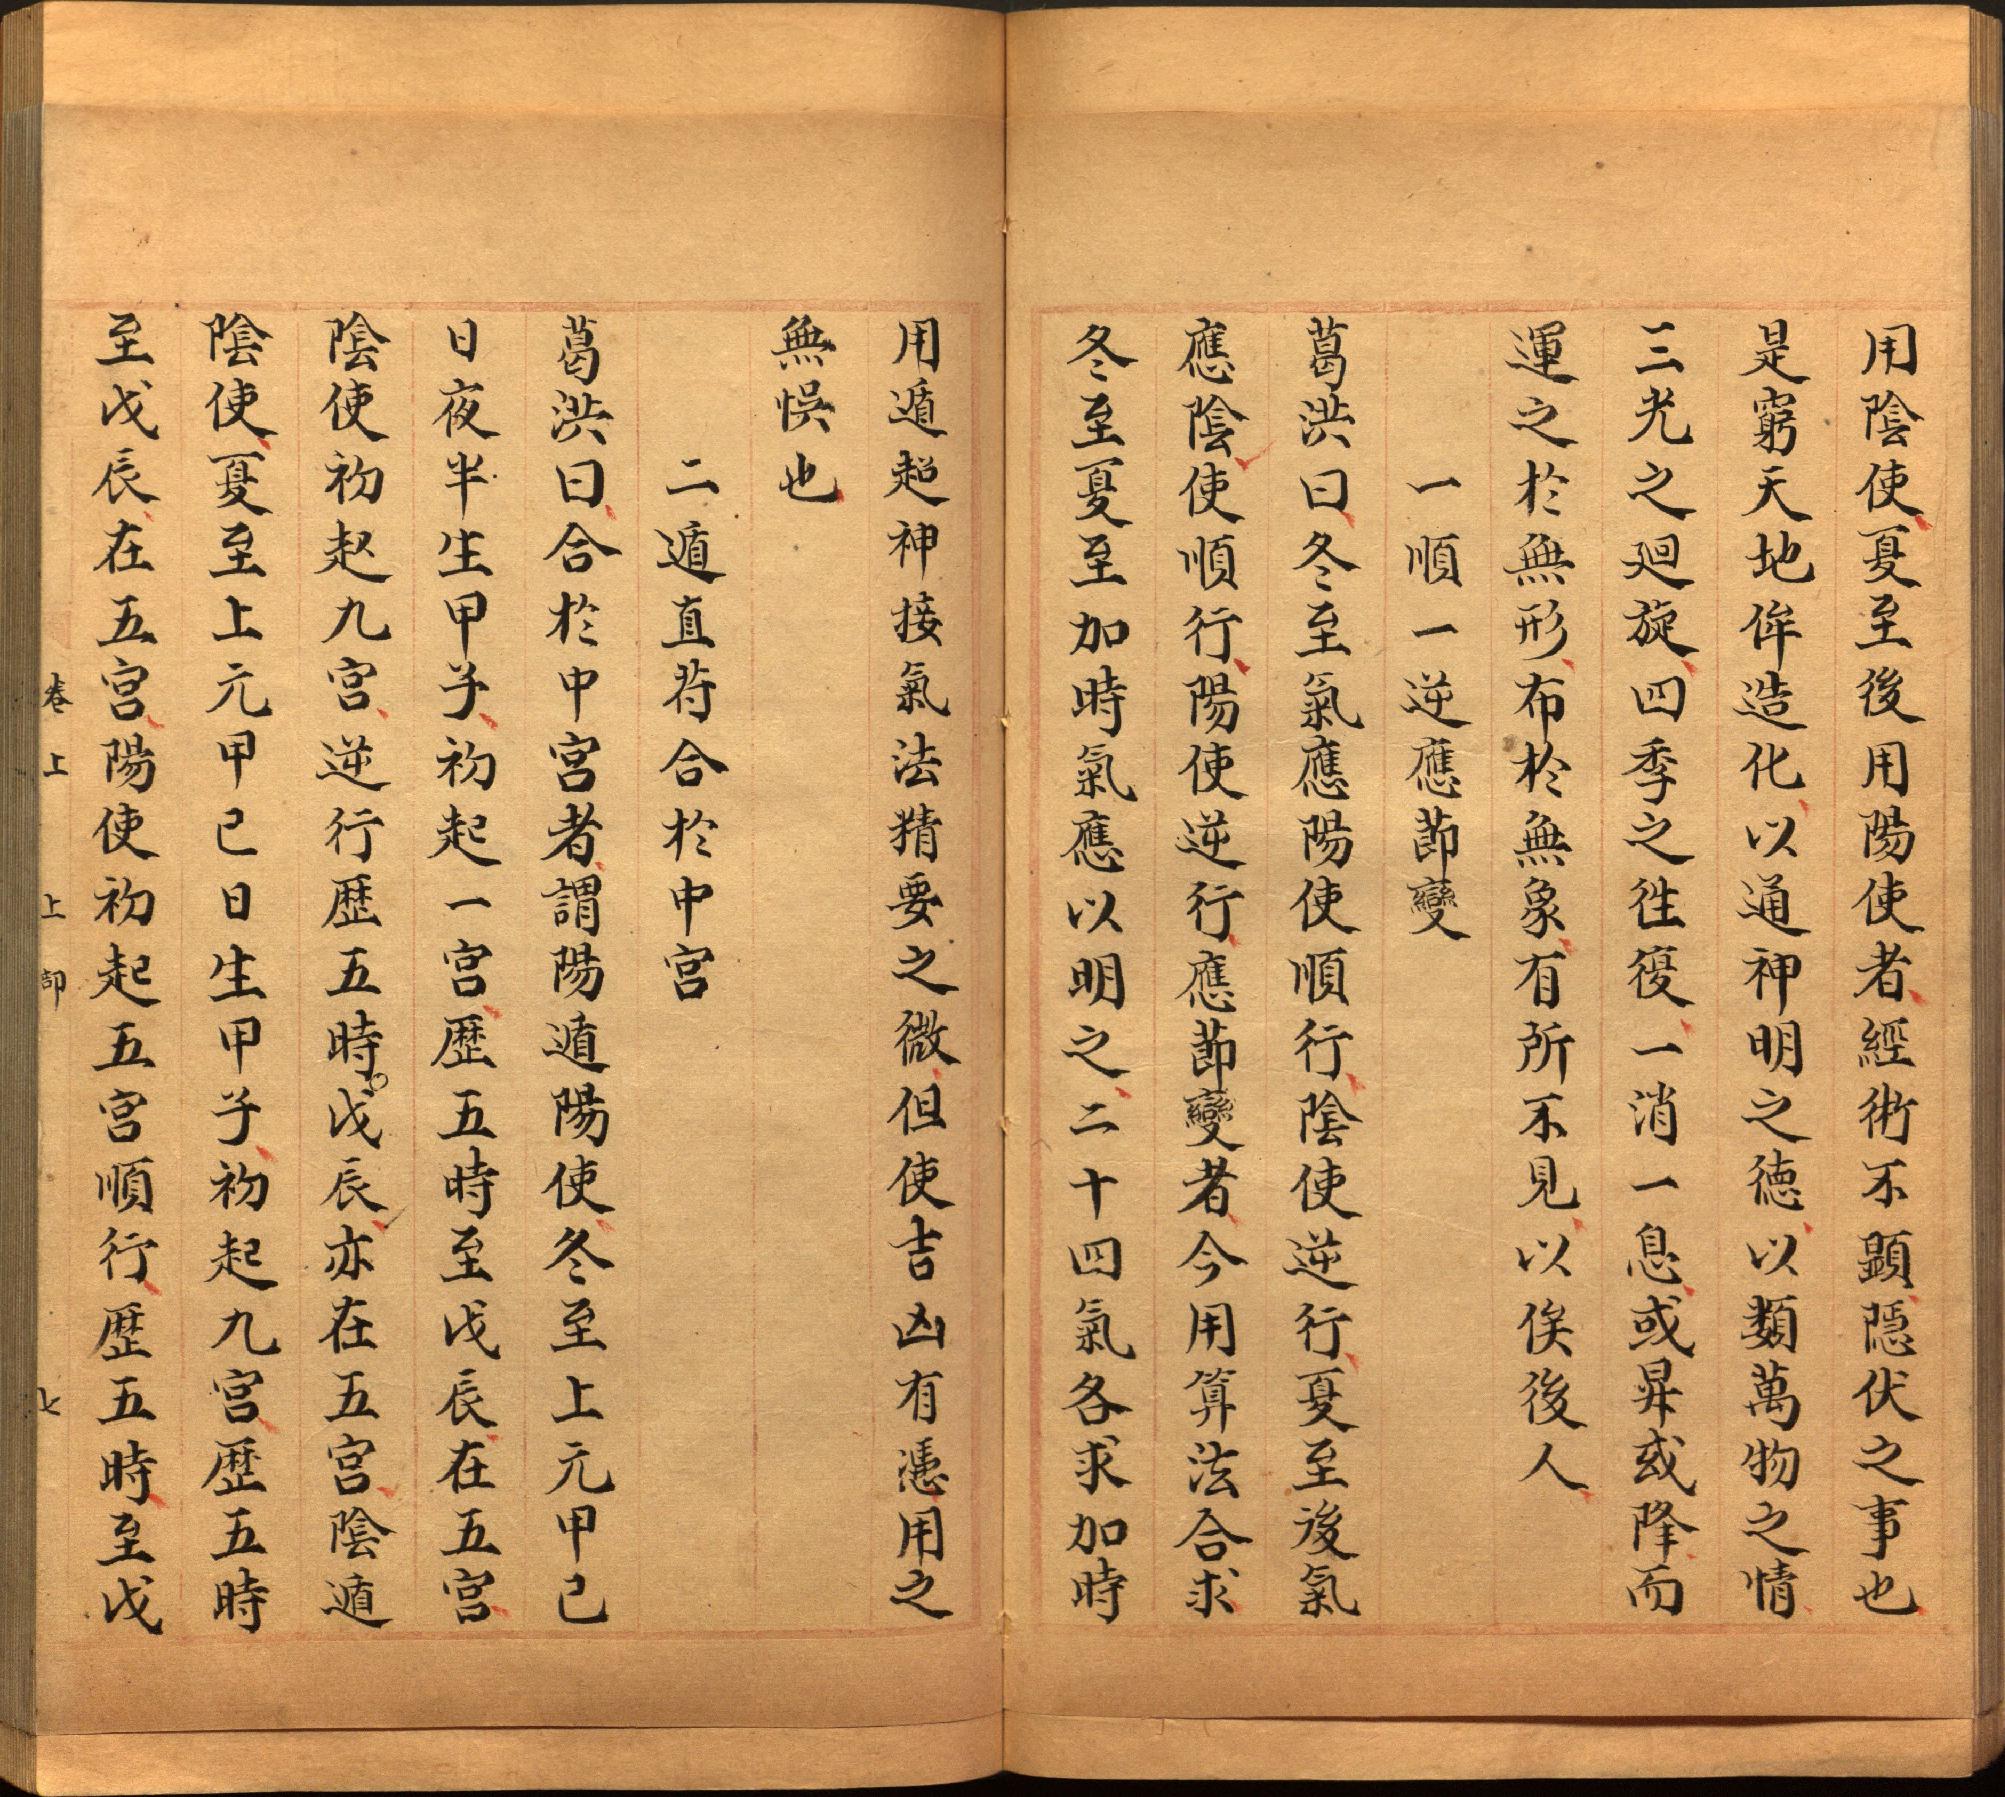 用陰使夏至後用陽使者經術不顕隱伏之事也
是窮天地侔造化以通神明之徳以類萬物之情
三光之廻旋四季之徃復一消一息或昇或降而
運之於無形布於無象有所不見以俟後人
一順一逆應節變
葛洪曰冬至氣應陽使順行陰使逆行夏至後氣
應陰使順行陽使逆行應節變者今用算法合求
冬至夏至加時氣應以明之二十四氣各求加時
用遁超神接氣法精要之微但使吉凶有憑用之
無悞也
二遁直苻合於中宮
葛洪曰合於中宮者謂陽遁陽使冬至上元甲己
日夜半生甲子初起一宮歴五時至戊辰在五宮
陰使初起九宮逆行歴五時戊辰亦在五宮陰遁
陰使夏至上元甲己日生甲子初起九宮歴五時
至戊辰在五宮陽使初起五宮順行歴五時至戊
卷上 上部 七